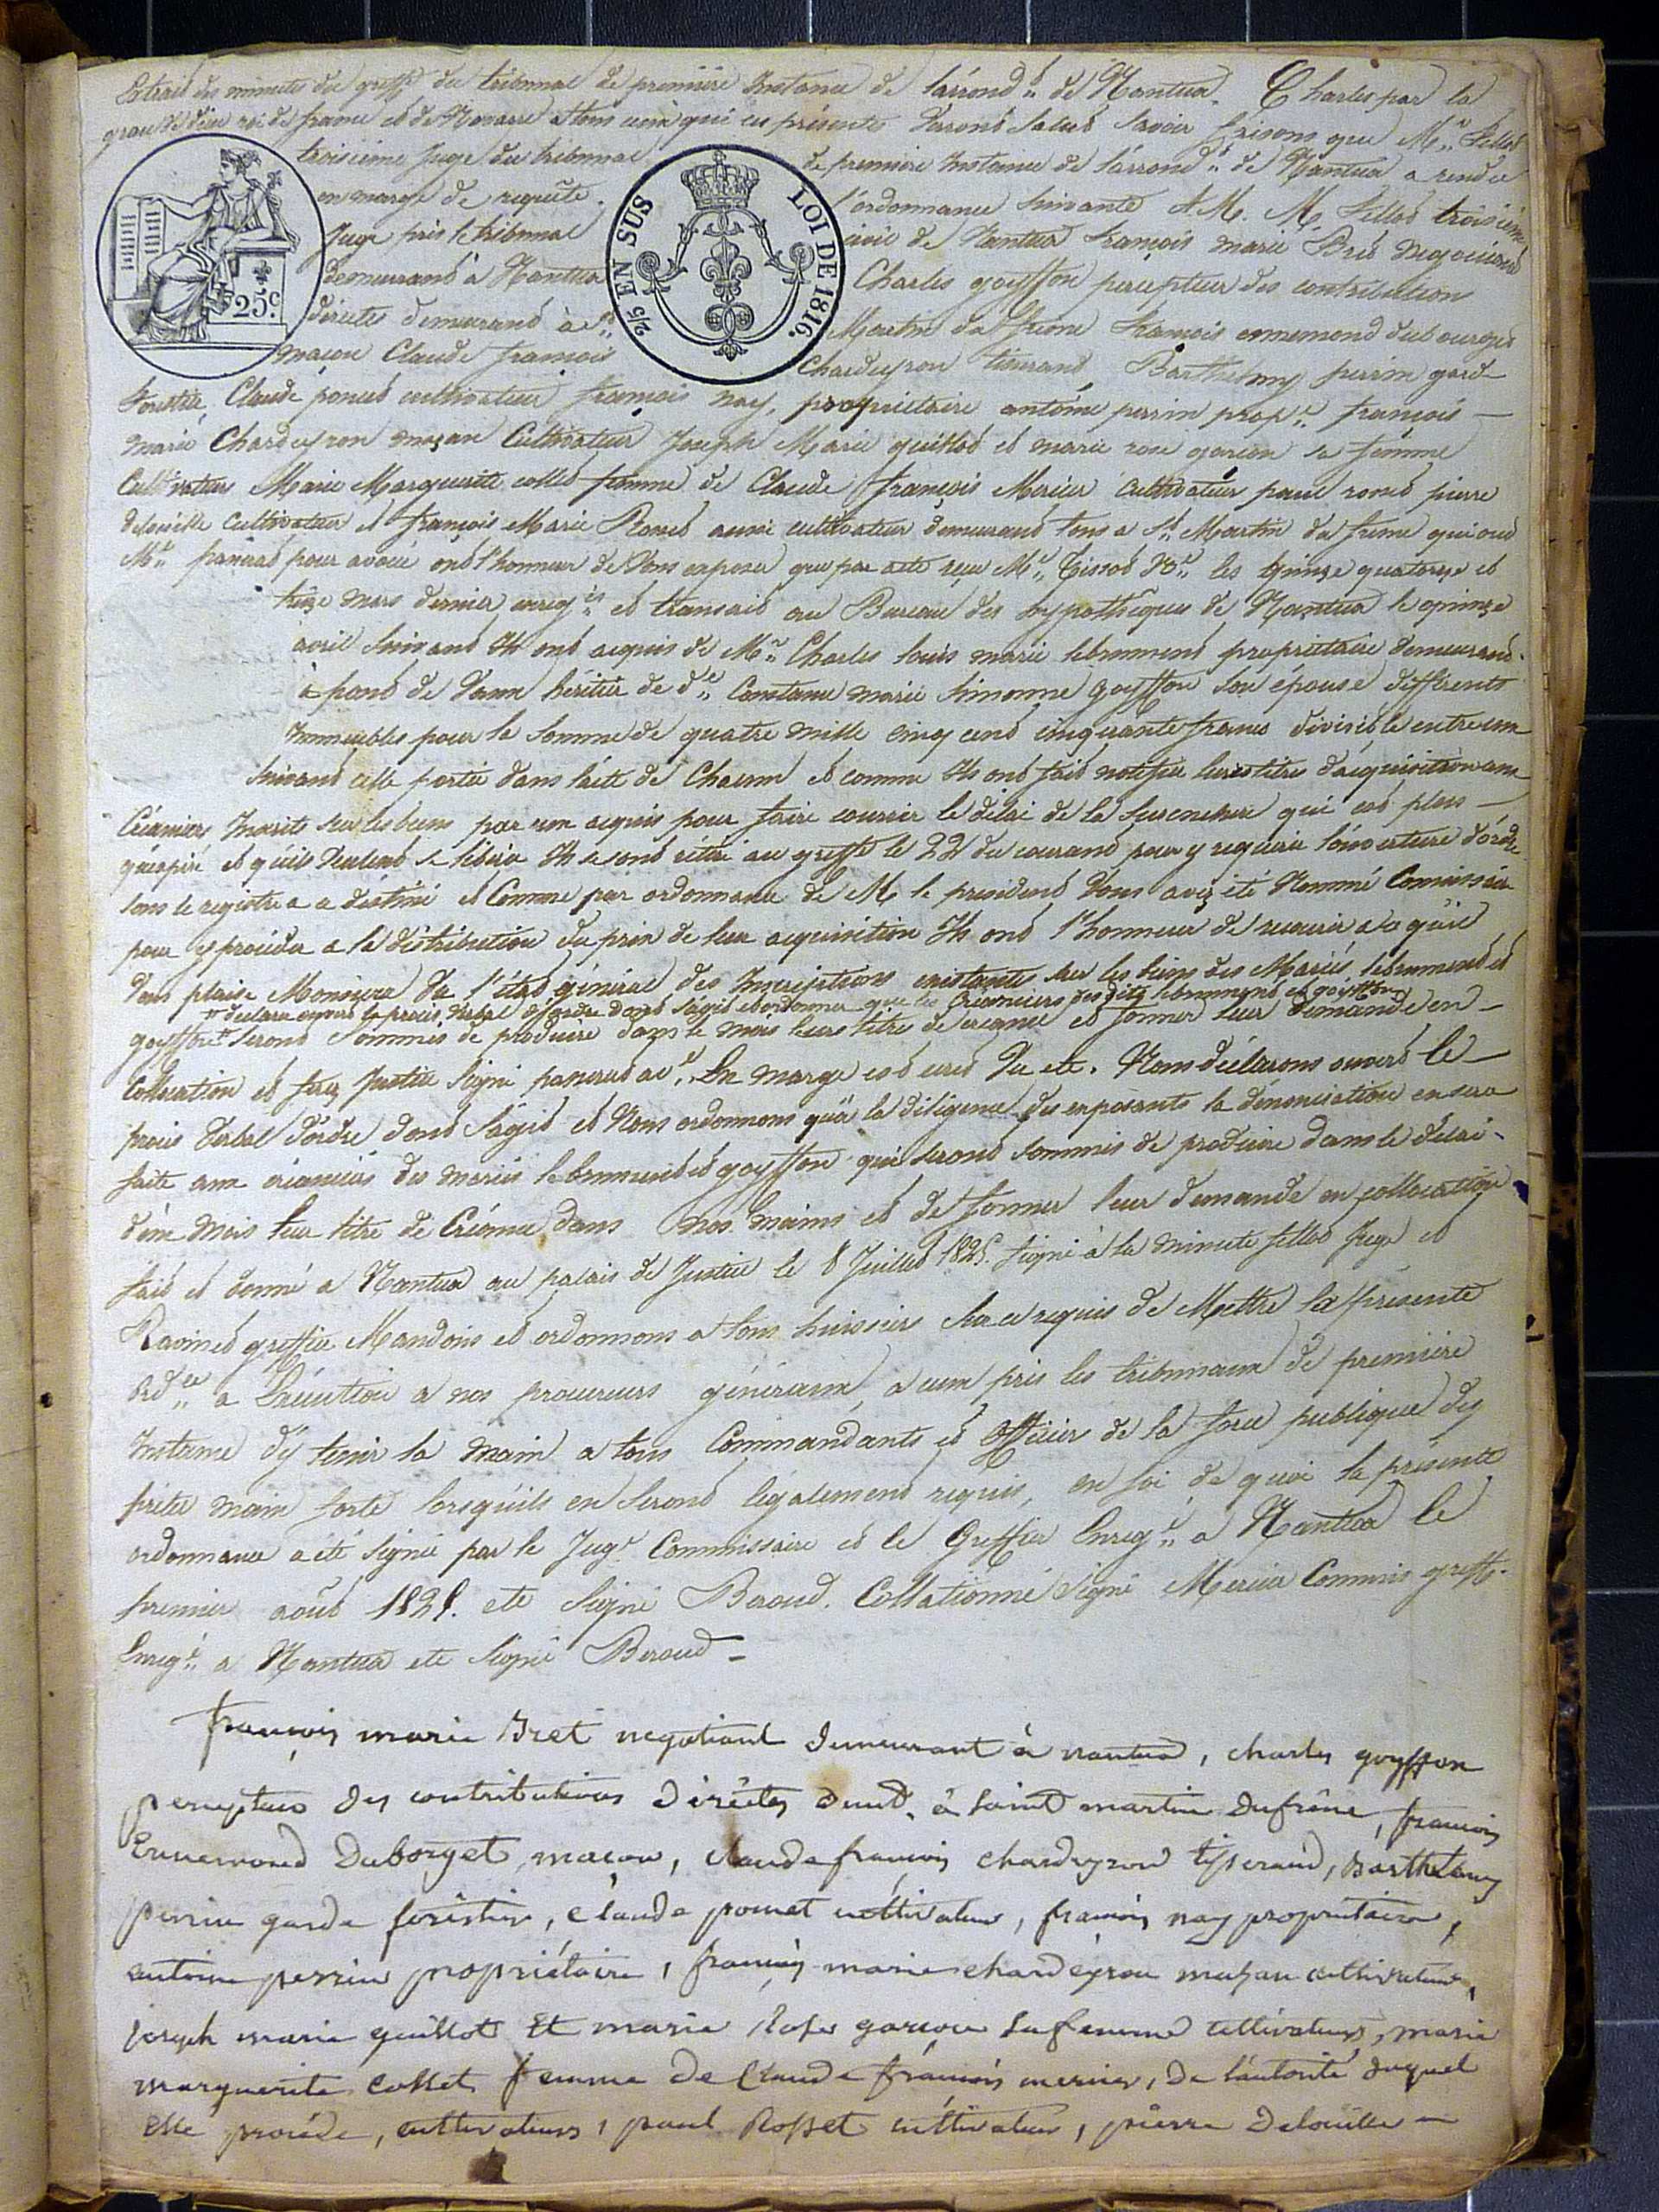 Extrait des minutes du greffe du tribunal de première Instance de l'arrond.t de Nantua. Charles par la
grace de dieu roi de france et de Navarre a tous ceux qui ces présentes Verront Salut Savoir faisons que Mr.
troisieme Juge du tribunal de premiere Instance de l'arrond.t de Nantua a rendu
en marge de requête l'ordonnance suivante A M. M. troisieme
Juge près le tribunal civil de Nantua françois marie Bret negociant
demeurant à Nantua Charles goyffon percepteur des contribution
directes demeurant à St. Martin du frene francois ennemond dubourget
maçon Claude françois Chardeyron tisserand Barthelmy perrin garde
forestier, Claude ponet cultivateur francois nay, propriétaire antoine perrin prop.re françois
marie Chardeyron mazan Cultivateur Joseph Marie guillot et marie rose garcon sa femme
Cultivateurs Marie Marguerite collet femme de Claude françois Mercier cultivateur paul rosset pierre
delouille cultivateur et françois Marie Rosset aussi cultivateur demeurant tous a St. Martin du frene qui ont
Me. pour avoué ont l'honneur de Vous exposer que par acte reçu Me. Tissot N.re les quinze quatorze et
treize mars dernier enreg.és et transcrit au Bureau des hypothèques de Nantua le quinze
avril suivant Ils ont acquis de Mr. Charles louis marie propriétaire demeurant
à pont de Vaux héritier de d.e Constance marie simonne Goyffon son épouse différents
Immeubles pour la Somme de quatre mille cinq cent cinquante francs divisible entre eux
suivant celle portée dans l'acte de Chacun et comme Ils ont fait notifier leurs titres d'acquisition aux
Créanciers Inscrits sur les biens par eux acquis pour faire courrir le délai de la surenchere qui est plus
qu'expiré et qu'ils veulent se libérer Ils se sont retiré au greffe le 22 du courant pour y requérir l'ouverture d'ordre
sous le registre a a destiné et Comme par ordonnance de M le president Vous avez été Nommé Commissaire
pour y procéder a la distribution du prix de leur acquisition Ils ont l'honneur de recourir a ce qu'il
Vous plaise Monsieur Vu l'état général des Inscriptions existantes sur les biens des Mariés et
declarer ouvert le procès Verbal d'ordre dont s'agit et ordonner que les Créanciers desdits et goyffon
goyffon Seront Sommés de produire dans le mois leurs titres de creance et former leur demande en
Collocation et ferez Justice Signé av.é. En marge est écrit Vu etc. Nous déclarons ouvert le
procès Verbal d'ordre dont s'agit et Nous ordonnons qu'a la diligence des exposants la dénonciation en sera
faite aux créanciers des mariés et goyffon qui seront sommés de produire dans le délai
d'un mois leur titre de Créance dans nos mains et de former leur demande en collocation
fait et donné a Nantua au palais de Justice le 8 Juillet 1825. Signé à la minute Juge et
Ravinet greffier Mandons et ordonnons a tous huissiers sur ce requis de Mettre la présente
Ord.ce a Exécution a nos procureurs généraux, a ceux près les tribunaux de première
Instance d'y tenir la main a tous Commandants et Officier de la force publique d'y
prêter main forte lorsqu'ils en Seront légalement requis, en foi de quoi la présente
ordonnance a été Signée par le Juge Commissaire et le Greffier Enreg.é a Nantua le
premier août 1825. etc Signé Beroud. Collationné Signé Mercier Commis greff.
Enreg.é a Nantua etc Signé Beroud
françois marie Bret negotiant demeurant à nantua, charles goyffon
percepteur des contributions directes dem.t à saint martin dufrêne, francois
Ennemond Duborget macon, claude francois chardeyron tisserand, Barthelemy
perrin garde forêstier, claude ponet cultivateur, françois nay propriétaire,
antoine perrin propriétaire, françois marie chardeyron mazan cultivateur,
joseph marie guillot et marie Rose garcon sa femme cultivateurs, marie
marguerite collet femme de claude françois mercier, de l'autorité duquel
elle procéde, cultivateurs, paul Rosset cultivateur, pierre Delouille
25.c
2/5 EN SUS
LOI DE 1816.